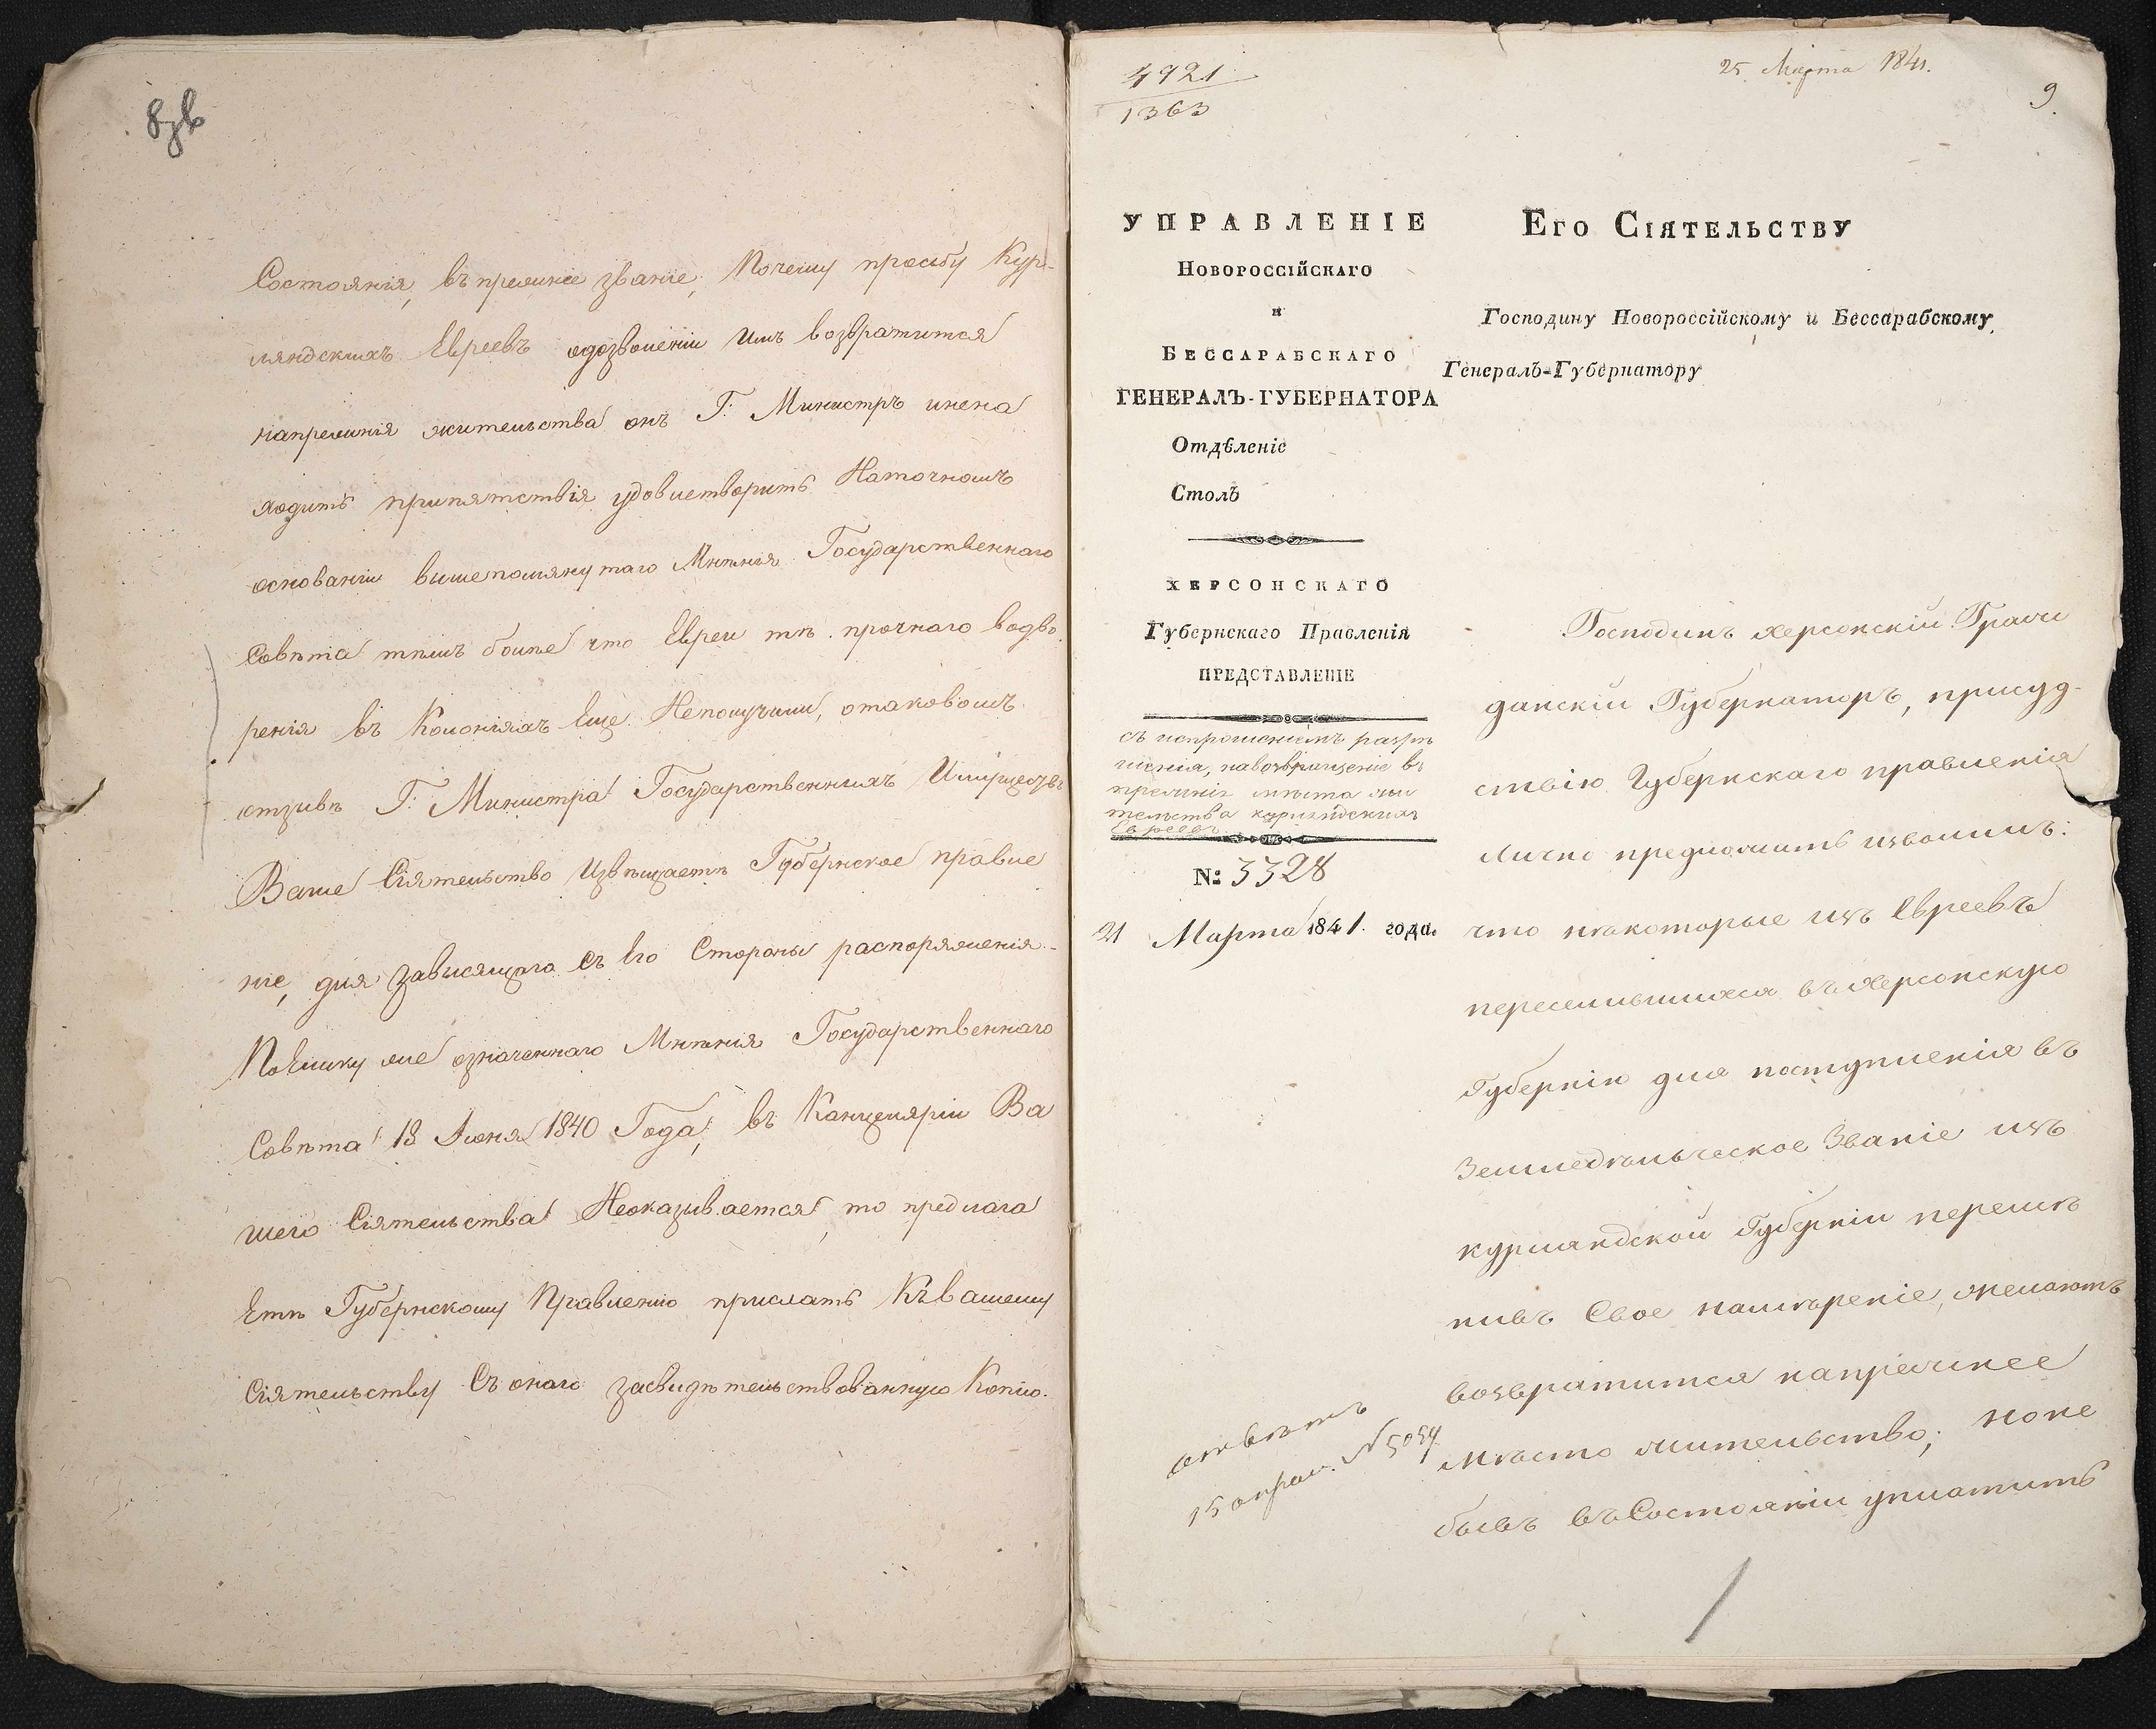 8зв
Состоянія, въ прежнее званіе, Почему просьбу Кур-
ляндскихъ Евреевъ одозволеніи имъ возвратится
напрежнія жительства онъ Г: Министръ нена
ходитъ припятствія удовлетворить Наточномъ
основаніи вышепомянутаго Мнѣнія Государственнаго
Совѣта тѣмъ болѣе что Евреи тѣ прочнаго водво
ренія въ Колоніяхъ еще Неполучили, отаковомъ
отзывѣ Г: Министра Государственныхъ Имуществъ
Ваше Сіятельство Извѣщаетъ Губернское правле
ніе, для зависящаго съ его Стороны распоряженія.
Поелику же означеннаго Мнѣнія Государственнаго
Совѣта 18 Июня 1840 Года, въ Канцеляріи Ва
шего Сіятельства Неоказывается, то предлага
етъ Губернскому Правленію прислать Къвашему
Сіятельству Съ онаго засвидѣтельствованную Копію.
4921
1363
25 Марта 1841.
9
УПРАВЛЕНІЕ
Новороссійскаго
и
Бессарабскаго
ГЕНЕРАЛЪ-ГУБЕРНАТОРА
Отдѣленіе
Столъ
ХЕРСОНСКАГО
Губернскаго Правленія
ПРЕДСТАВЛЕНІЕ
съ испрошеніемъ разрѣ
шенія, навозвращеніе въ
прежніе мѣста жи
тельства курляндскихъ
Евреевъ
N: 3328
21 Марта 1841. года.
отвѣтъ
15 апрѣл. N 5054
Его Сіятельству
Господину Новороссійскому и Бессарабскому
Генералъ-Губернатору
Господинъ Херсонскій Граж
данскій Губернаторъ, присуд-
ствію Губернскаго правленія
Лично предложить изволилъ:
что нѣкоторые изъ Евреевъ
переселившихся въ Херсонскую
Губернію для поступленія въ
Земледѣльческое Званіе изъ
курляндской Губерніи перемѣ
нивъ Свое намѣреніе, желаютъ
возвратится напрежнее
мѣсто жительство; ноне
бывъ въСостояніи уплатить